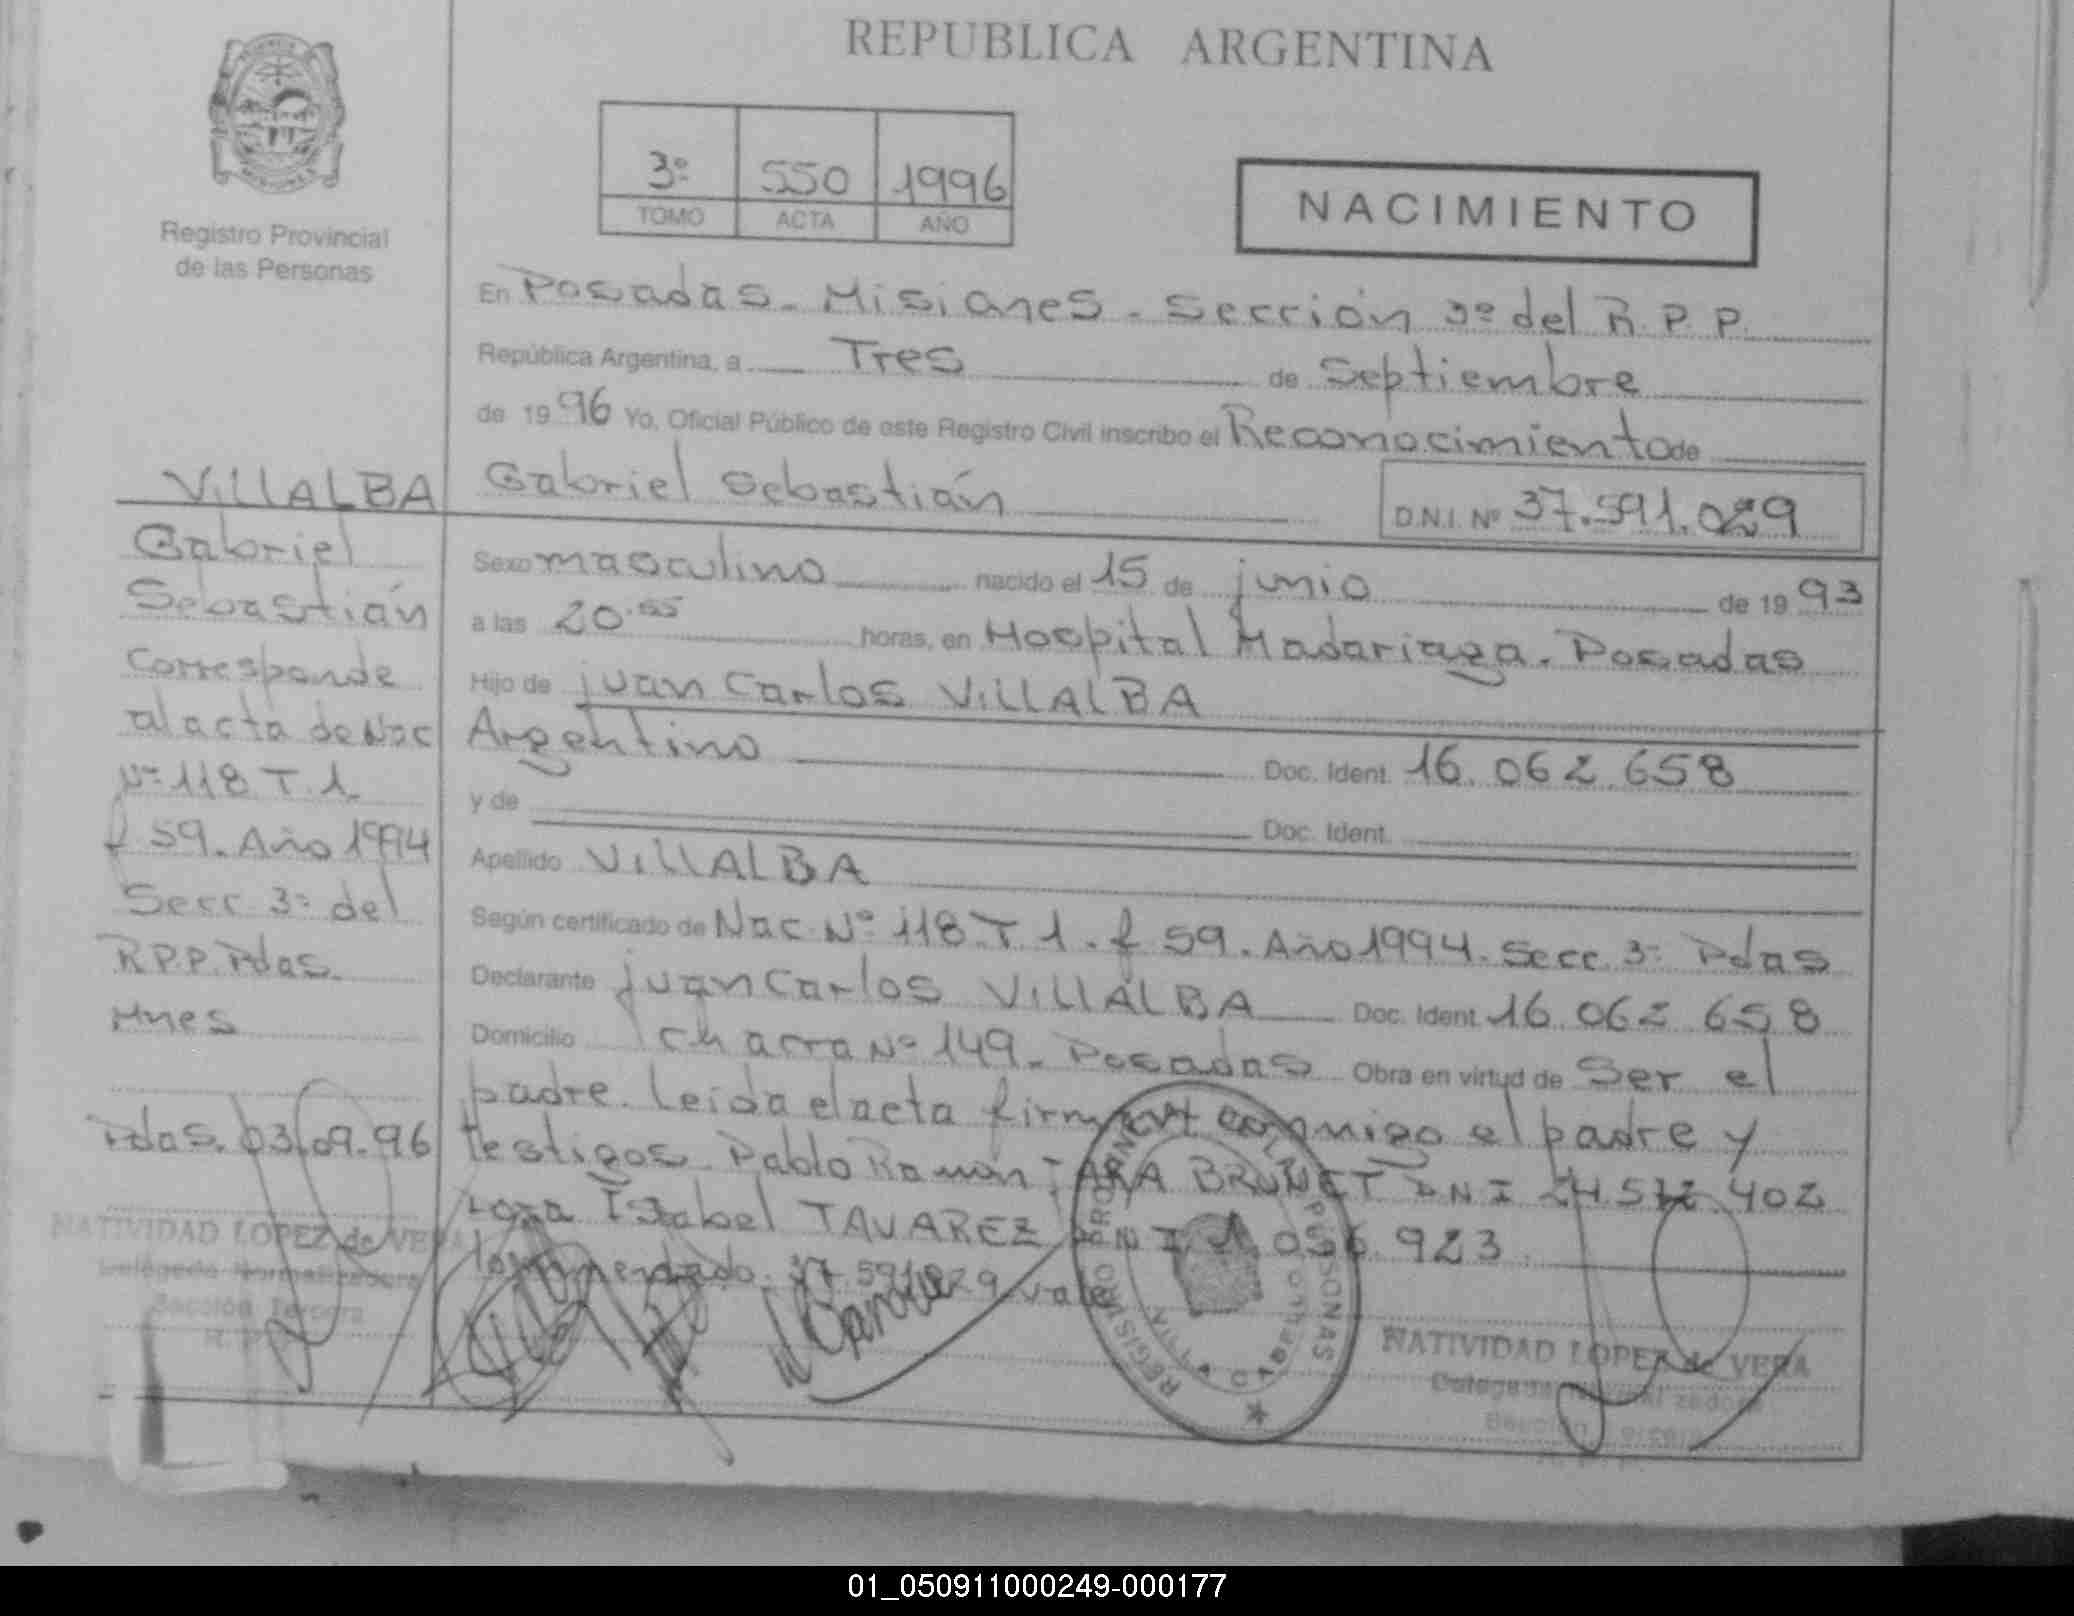 REPUBLICA ARGENTINA
Registro Provincial
de las Personas
3º 550 1996
TOMO ACTA AÑO
NACIMIENTO
En Posadas - Misiones - Sección 3º del R.P.P.
República Argentina, a Tres de Septiembre
de 1996 Yo, Oficial Público de este Registro Civil inscribo el Reconocimiento de
Gabriel Sebastián D.N.I. Nº 37.591.029
Sexo masculino nacido el 15 de junio de 1993
a las 20.55 horas, en Hospital Madariaga. Posadas
Hijo de juan Carlos VILLALBA
Argentino Doc. Ident. 16.062.658
y de Doc. Ident.
Apellido VILLALBA
Según certificado de Nac. Nº 118. T 1. f 59. Año 1994. Secc. 3º Pdas
Declarante juan Carlos VILLALBA Doc. Ident. 16.062.658
Domicilio Chacra Nº 149. Posadas Obra en virtud de Ser el
padre. Leída el acta firman conmigo el padre y
testigos Pablo Ramón JARA BRUNET DNI 402
Isabel TAVAREZ DNI 923.
enmendado. 37.591.029 vale
VILLALBA
Gabriel
Sebastián
Corresponde
al acta de Nac
Nº 118 T. 1.
f 59. Año 1994
Secc 3º del
R.P.P. Pdas.
Mnes
Pdas. 03.09.96
NATIVIDAD LOPEZ de VERA
Delegada Normalizadora
Sección Tercera
REGISTRO PROVINCIAL DE LAS PERSONAS
NATIVIDAD LOPEZ de VERA
01_050911000249-000177